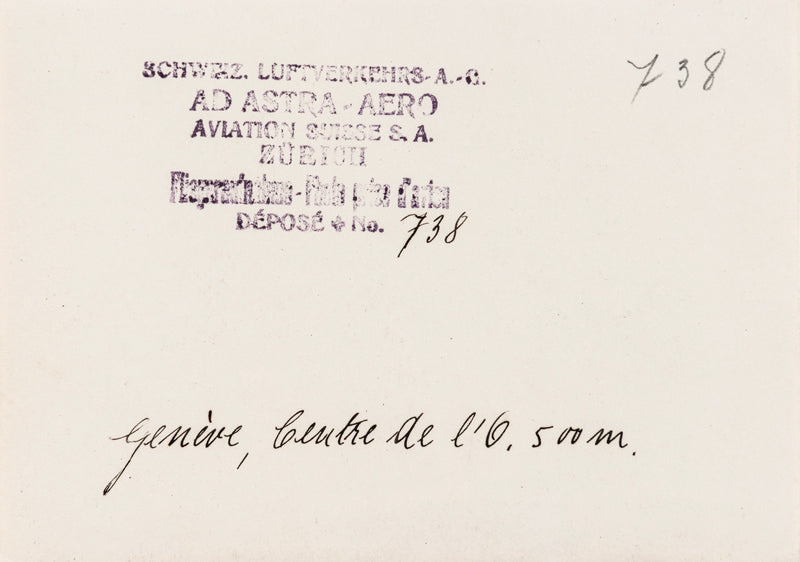 738
SCHWEIZ. LUFTVERKEHRS-A.-G.
AD ASTRA-AERO
AVIATION SUISSE S. A.
ZÜRICH
Fliegeraufnahme - Photo prise d'avion
DÉPOSÉ No. 738
Genève, Centre de l'O. 500 m.